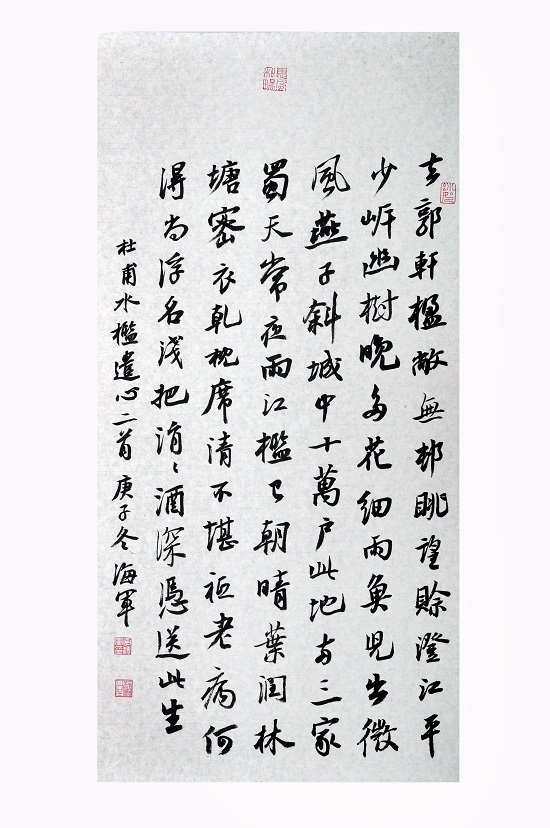 去郭軒楹敞無邨眺望賒澄江平
少岸幽樹晚多花細雨魚兒出微
風燕子斜城中十萬戶此地兩三家
蜀天常夜雨江檻已朝晴葉潤林
塘密衣乾枕席清不堪祗老病何
得尚浮名淺把涓〻酒深憑送此生
杜甫水檻遣心二首 庚子冬海軍